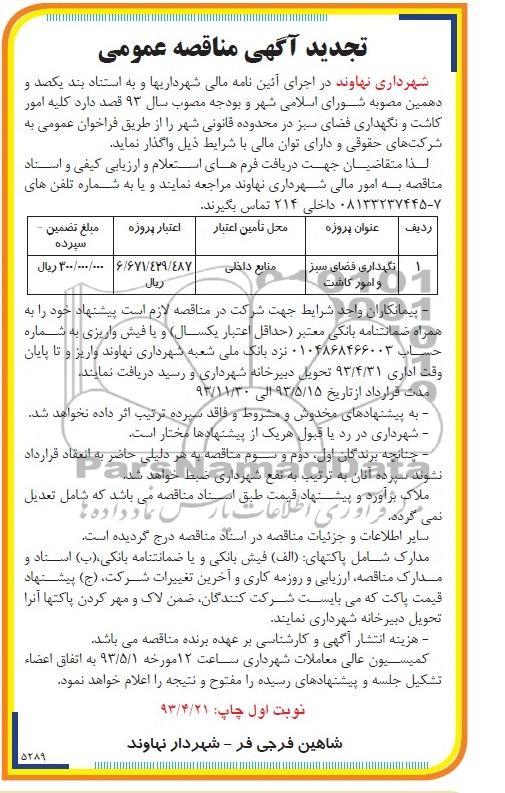 تجدید آگهی مناقصه عمومی
شهرداری نهاوند در اجرای آئین نامه مالی شهرداریها و به استناد بند یکصد و
دهمین مصوبه شورای اسلامی شهر و بودجه مصوب سال ۹۳ قصد دارد کلیه امور
کاشت و نگهداری فضای سبز در محدوده قانونی شهر را از طریق فراخوان عمومی به
شرکت‌های حقوقی و دارای توان مالی با شرایط ذیل واگذار نماید.
لذا متقاضیان جهت دریافت فرم های استعلام و ارزیابی کیفی و اسناد
مناقصه به امور مالی شهرداری نهاوند مراجعه نمایند و یا به شماره تلفن های
۷-۰۸۱۳۳۲۳۷۴۴۵ داخلی ۲۱۴ تماس بگیرند.
ردیف عنوان پروژه محل تأمین اعتبار اعتبار پروژه مبلغ تضمین - سپرده
۱ نگهداری فضای سبز و امور کاشت منابع داخلی ۶/۶۷۱/۴۳۹/۴۸۷ ریال ۳۰۰/۰۰۰/۰۰۰ ریال
- پیمانکاران واجد شرایط جهت شرکت در مناقصه لازم است پیشنهاد خود را به
همراه ضمانتنامه بانکی معتبر (حداقل اعتبار یکسال) و یا فیش واریزی به شماره
حساب ۰۱۰۴۸۶۸۴۶۶۰۰۳ نزد بانک ملی شعبه شهرداری نهاوند واریز و تا پایان
وقت اداری ۹۳/۴/۳۱ تحویل دبیرخانه شهرداری و رسید دریافت نمایند.
مدت قرارداد ازتاریخ ۹۳/۵/۱۵ الی ۹۳/۱۱/۳۰
- به پیشنهادهای مخدوش و مشروط و فاقد سپرده ترتیب اثر داده نخواهد شد.
- شهرداری در رد یا قبول هریک از پیشنهادها مختار است.
- چنانچه برندگان اول، دوم و سوم مناقصه به هر دلیلی حاضر به انعقاد قرارداد
نشوند سپرده آنان به ترتیب به نفع شهرداری ضبط خواهد شد.
ملاک برآورد و پیشنهاد قیمت طبق اسناد مناقصه می باشد که شامل تعدیل
نمی گردد.
سایر اطلاعات و جزئیات مناقصه در اسناد مناقصه درج گردیده است.
مدارک شامل پاکتهای: (الف) فیش بانکی و یا ضمانتنامه بانکی،(ب) اسناد و
مدارک مناقصه، ارزیابی و روزمه کاری و آخرین تغییرات شرکت، (ج) پیشنهاد
قیمت پاکت که می بایست شرکت کنندگان، ضمن لاک و مهر کردن پاکتها آنرا
تحویل دبیرخانه شهرداری نمایند.
- هزینه انتشار آگهی و کارشناسی بر عهده برنده مناقصه می باشد.
کمیسیون عالی معاملات شهرداری ساعت ۱۲مورخه ۹۳/۵/۱ به اتفاق اعضاء
تشکیل جلسه و پیشنهادهای رسیده را مفتوح و نتیجه را اعلام خواهد نمود.
نوبت اول چاپ: ۹۳/۴/۲۱
شاهین فرجی فر - شهردار نهاوند
۵۲۸۹
ParsNamadData
مرکز فرآوری اطلاعات پارس نماد داده ها